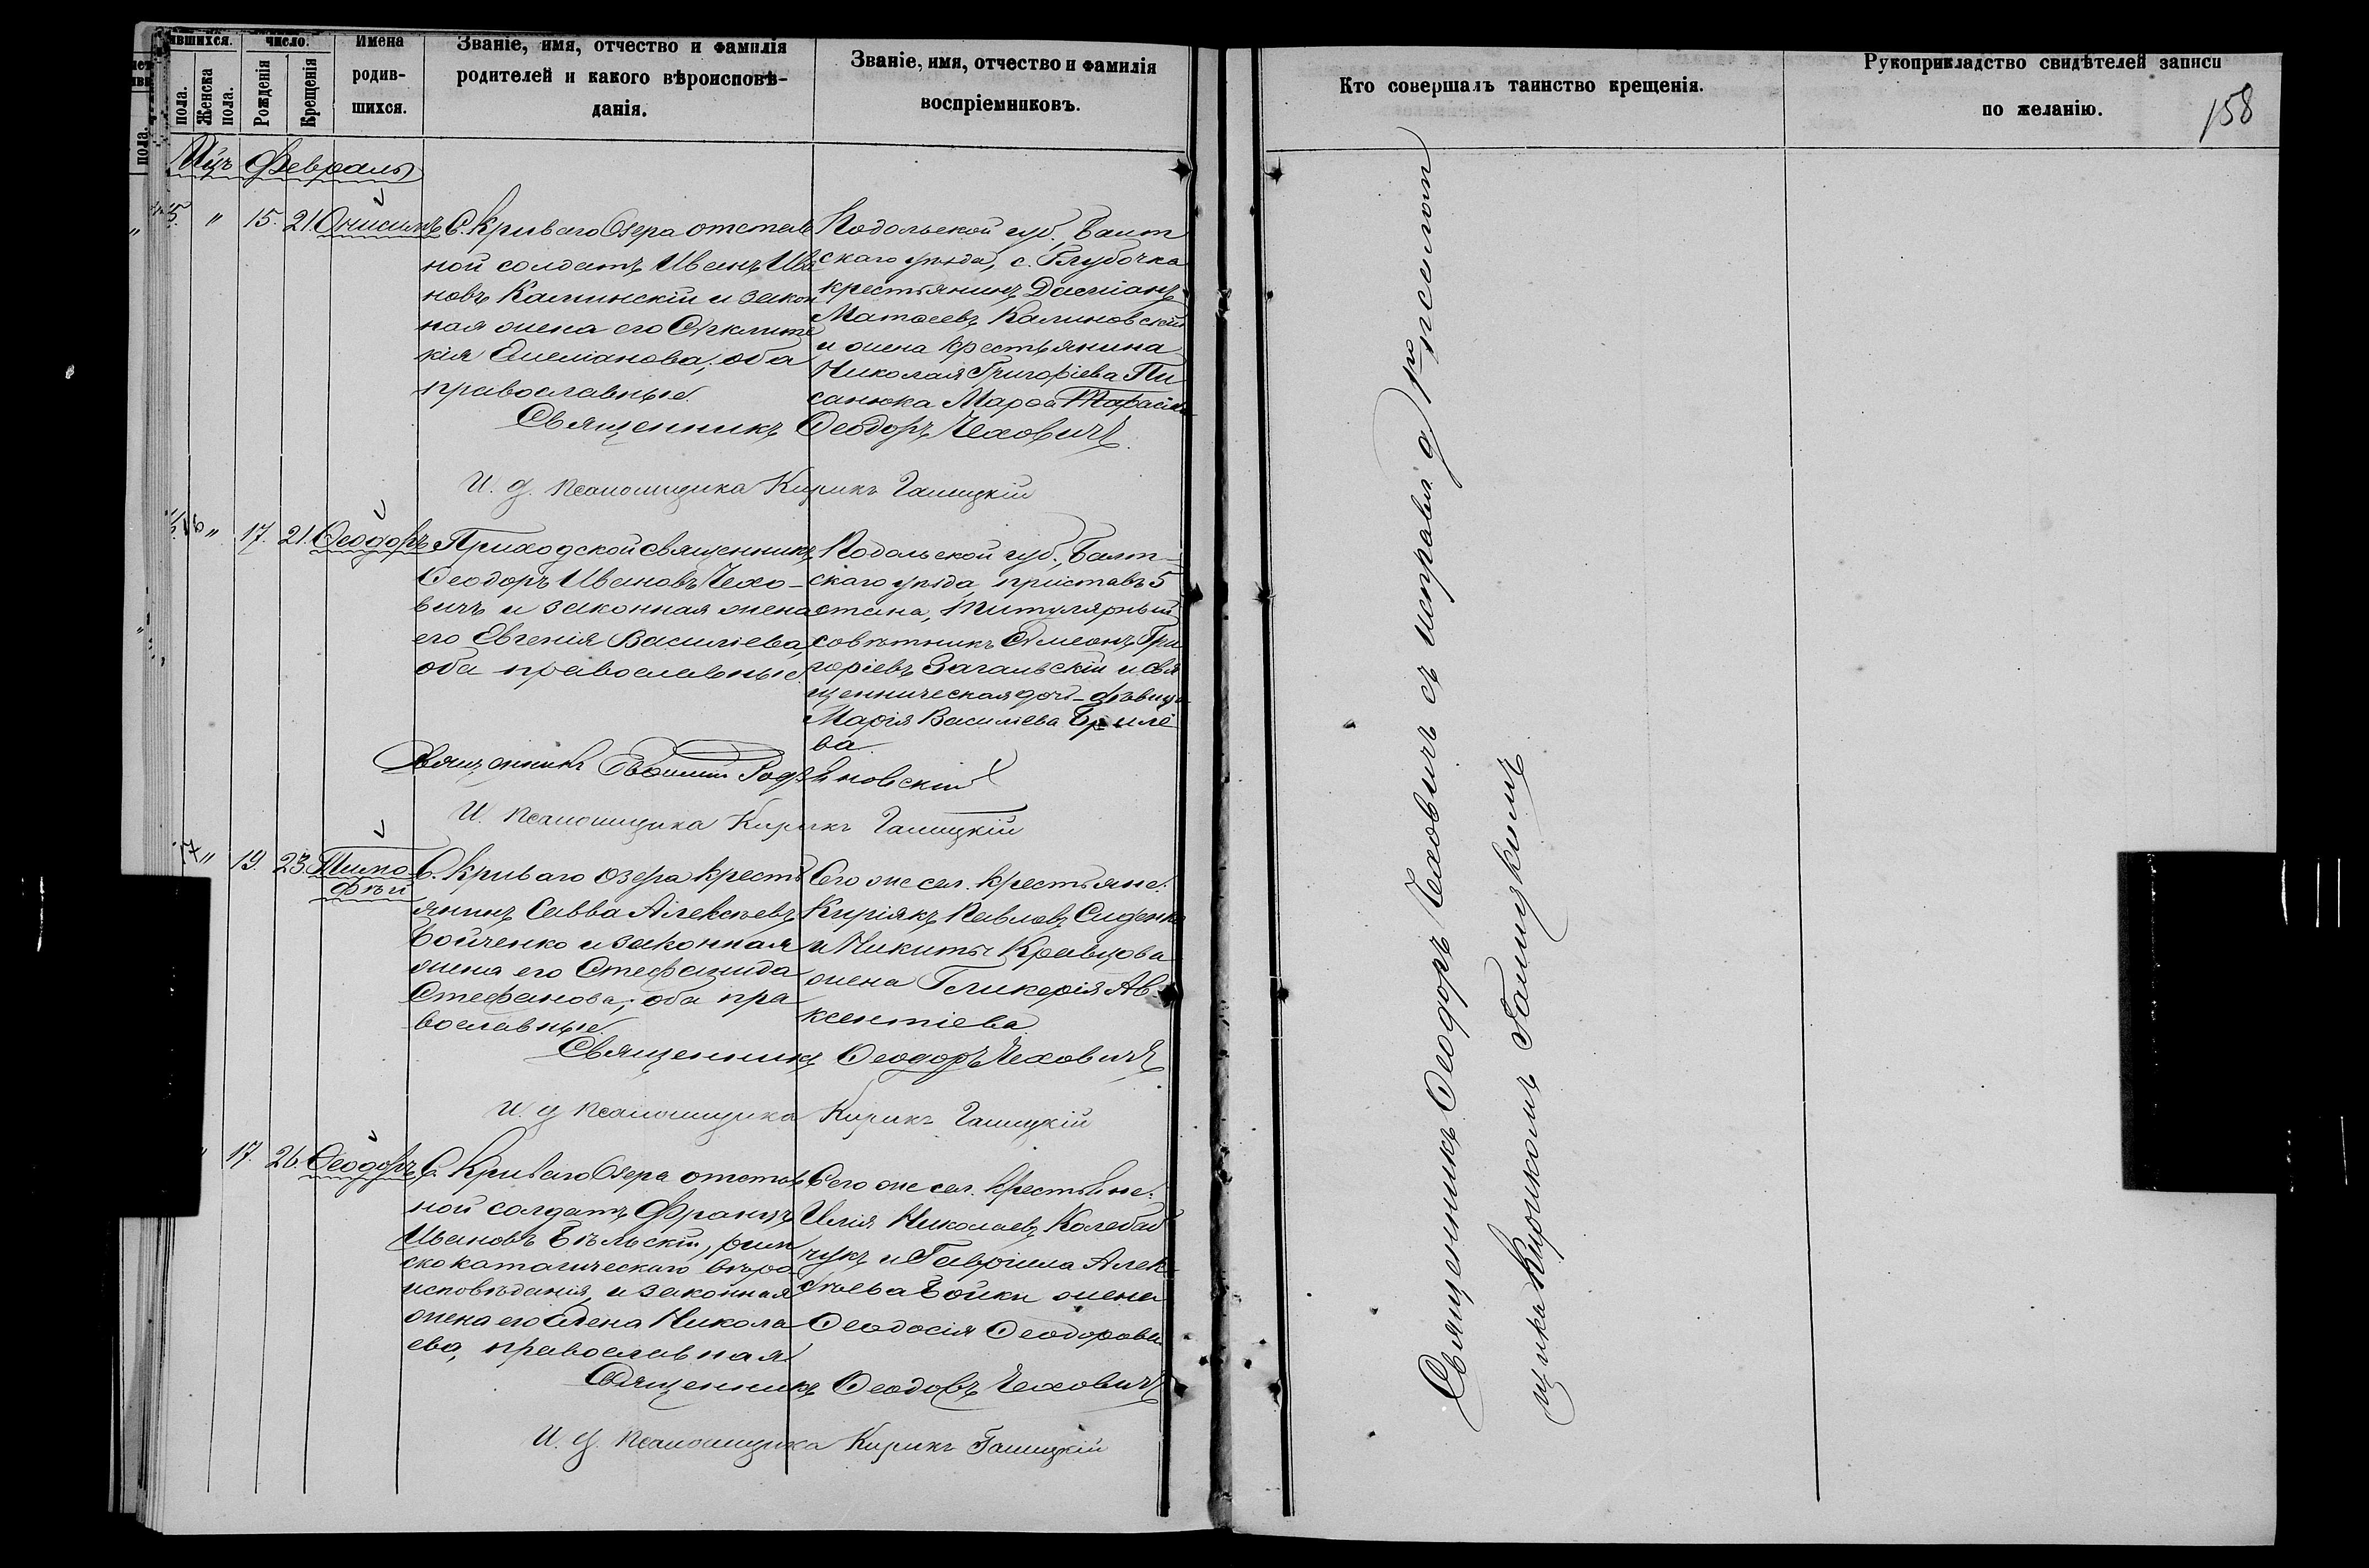 ившихся.
число.
Имена
родив-
шихся.
пола.
Женска
пола.
Рожденія
Крещенія
Званіе, имя, отчество и фамилія
родителей и какого вѣроисповѣ-
данія.
Званіе, имя, отчество и фамилія
воспріемниковъ.
Кто совершалъ таинство крещенія.
Рукоприкладство свидѣтелей записи
по желанію.
158
Мцъ Февраль
5. " 15. 21. Онисимъ
С. Криваго Озера отстав
ной солдатъ Иванъ Ива
новъ Калинскій и закон
ная жена его
кія Емеліанова, оба
православные.
Подольской губ. Балт
скаго уѣзда, с. Глубочка
крестьянинъ Даміанъ
Матѳеевъ Калиновскій
и жена крестьянина
Николая Григоріева Пи
санюка Марѳа
Священникъ Ѳеодоръ Чеховичъ
И. д. псаломщика Кирикъ Галицкій
16 " 17. 21. Ѳеодоръ
Приходской священникъ
Ѳеодоръ Ивановъ Чехо-
вичъ и законная жена
его Евгенія Василіева,
оба православные.
Подольской губ., Балт-
скаго уѣзда, приставъ 5
стана, титулярный
совѣтникъ Симеонъ Гри
горіевъ Загальскій и свя
щенническая дочь-дѣвица
Марія Василіева
ва
Священникъ Евѳимій
И. псаломщика Кирикъ Галицкій
17 " 19. 23. Тимо
фѣй
С. Криваго Озера кресть
янинъ Савва Алексѣевъ
Бойченко и законная
жена его Стефанида
Стефанова, оба пра
вославные.
Сего же сел. крестьяне:
Киріякъ Павловъ
и Никиты Кравцова
жена Гликерія Ав-
ксентіева.
Священникъ Ѳеодоръ Чеховичъ
И. д. псаломщика Кирикъ Галицкій
" 17. 26. Ѳеодоръ
С. Криваго Озера отстав
ной солдатъ Францъ
Ивановъ Бѣльскій, рим
скокатолическаго вѣро-
исповѣданія, и законная
жена его Елена Никола
ева, православная.
Сего же сел. крестьяне:
Илія Николаевъ
чукъ и Гавріила Алек-
сѣева Бойки жена
Ѳеодосія Ѳеодорова
Священникъ Ѳеодоръ Чеховичъ
И. д. псаломщика Кирикъ Галицкій
Священникъ Ѳеодоръ Чеховичъ съ исправл. д. псалом
щика Кирикомъ Галицкимъ